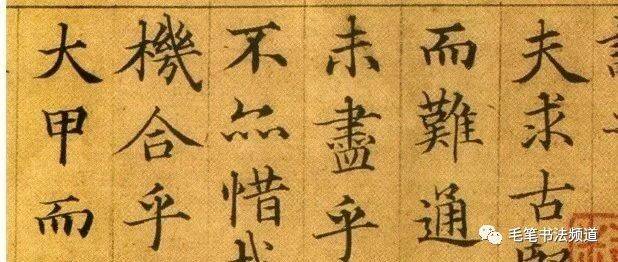 夫求古賢
而難通
未盡乎
不亦惜哉
機合乎
大甲而
毛笔书法频道